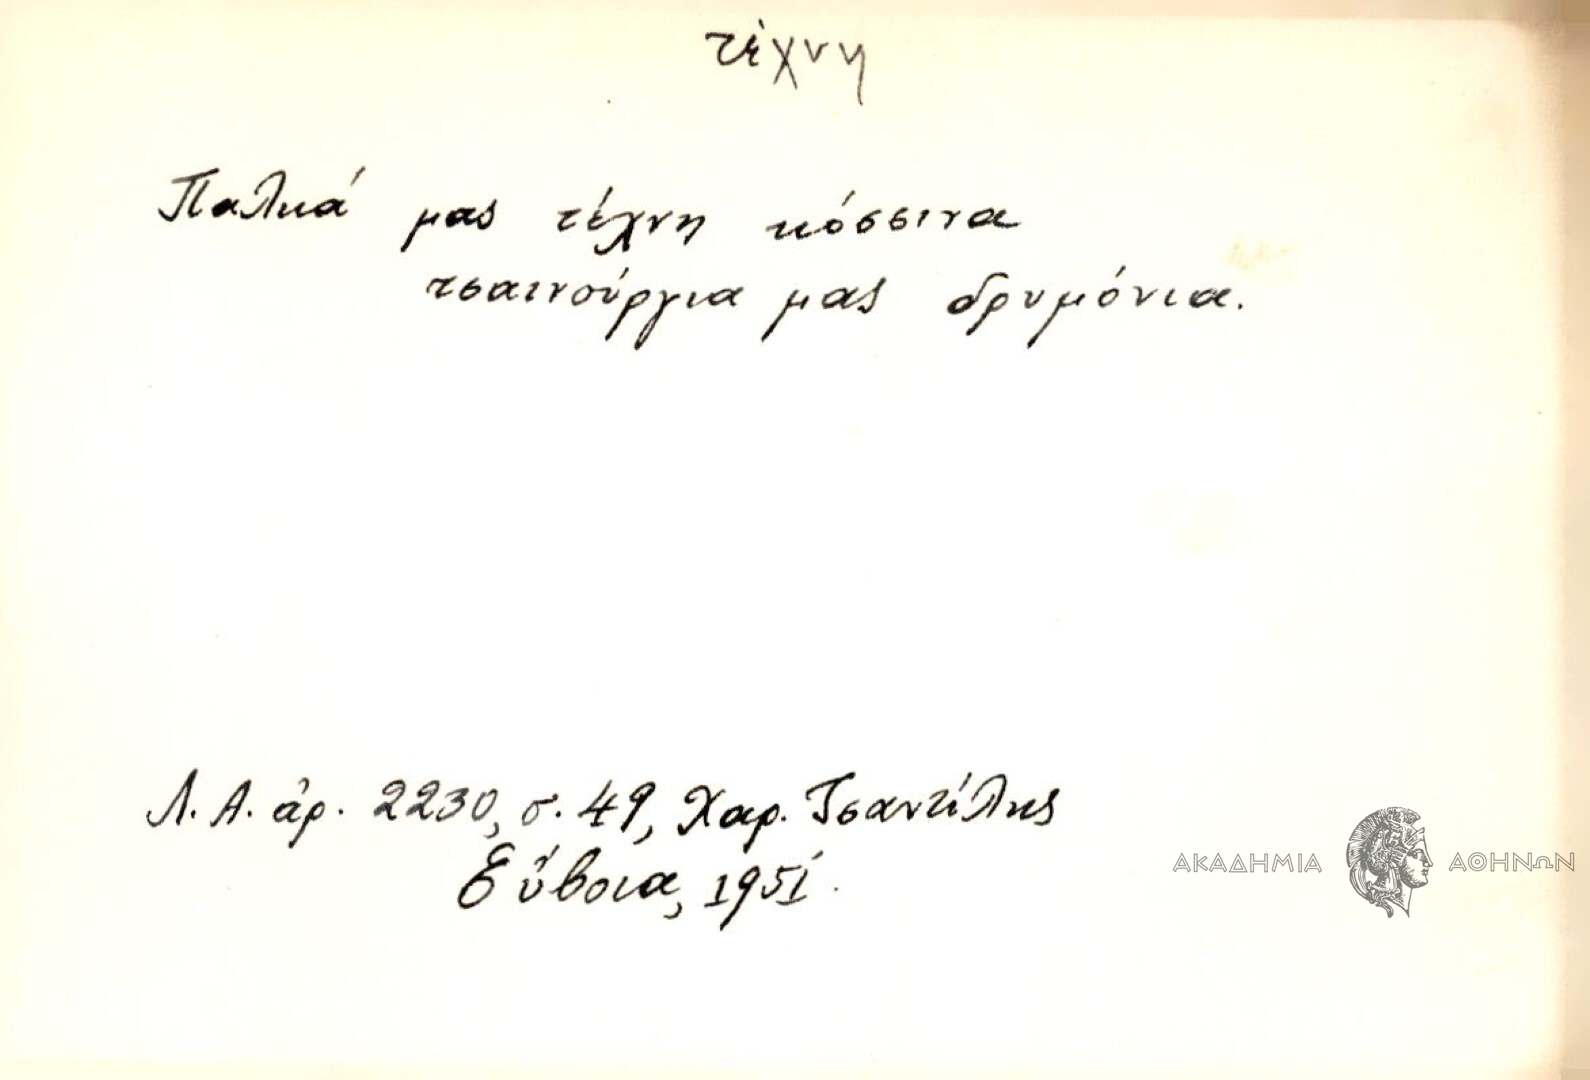 τέχνη
Παλιά μας τέχνη κόσσινα
τσαινούργια μας δρυμόνια.
Λ.Α. ἀρ. 2230, σ. 49, Χαρ. Τσαντίλης
Εὔβοια, 1951.
ΑΚΑΔΗΜΙΑ ΑΘΗΝΩΝ